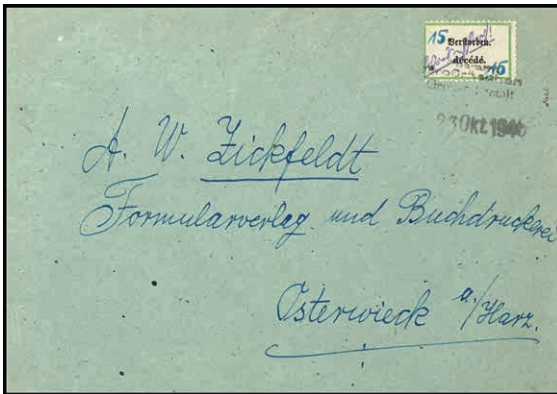 15 Verstorben.
décédé. 15
23 OKT. 1945
A. W. Zickfeldt
Formularverlag und Buchdruckerei
Osterwieck a/Harz.